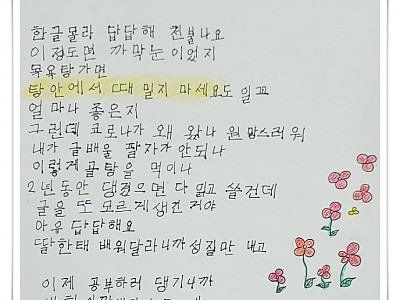 한글몰라 답답해 천불나요
이정도면 까막눈이었지
목욕탕가면
탕안에서 때 밀지 마세요도 일고
얼마나 좋은지
그런데 코로나가 왜 왔나 원망스러워
내가 글배울 팔자가 안되나
이렇게 골탕을 먹이나
2년동안 댕겼으면 다 읽고 쓸건데
글을 또 모르게생긴거야
아유 답답해요
딸한태 배워달라니까 성질만 내고
이제 공부하러 댕기니까